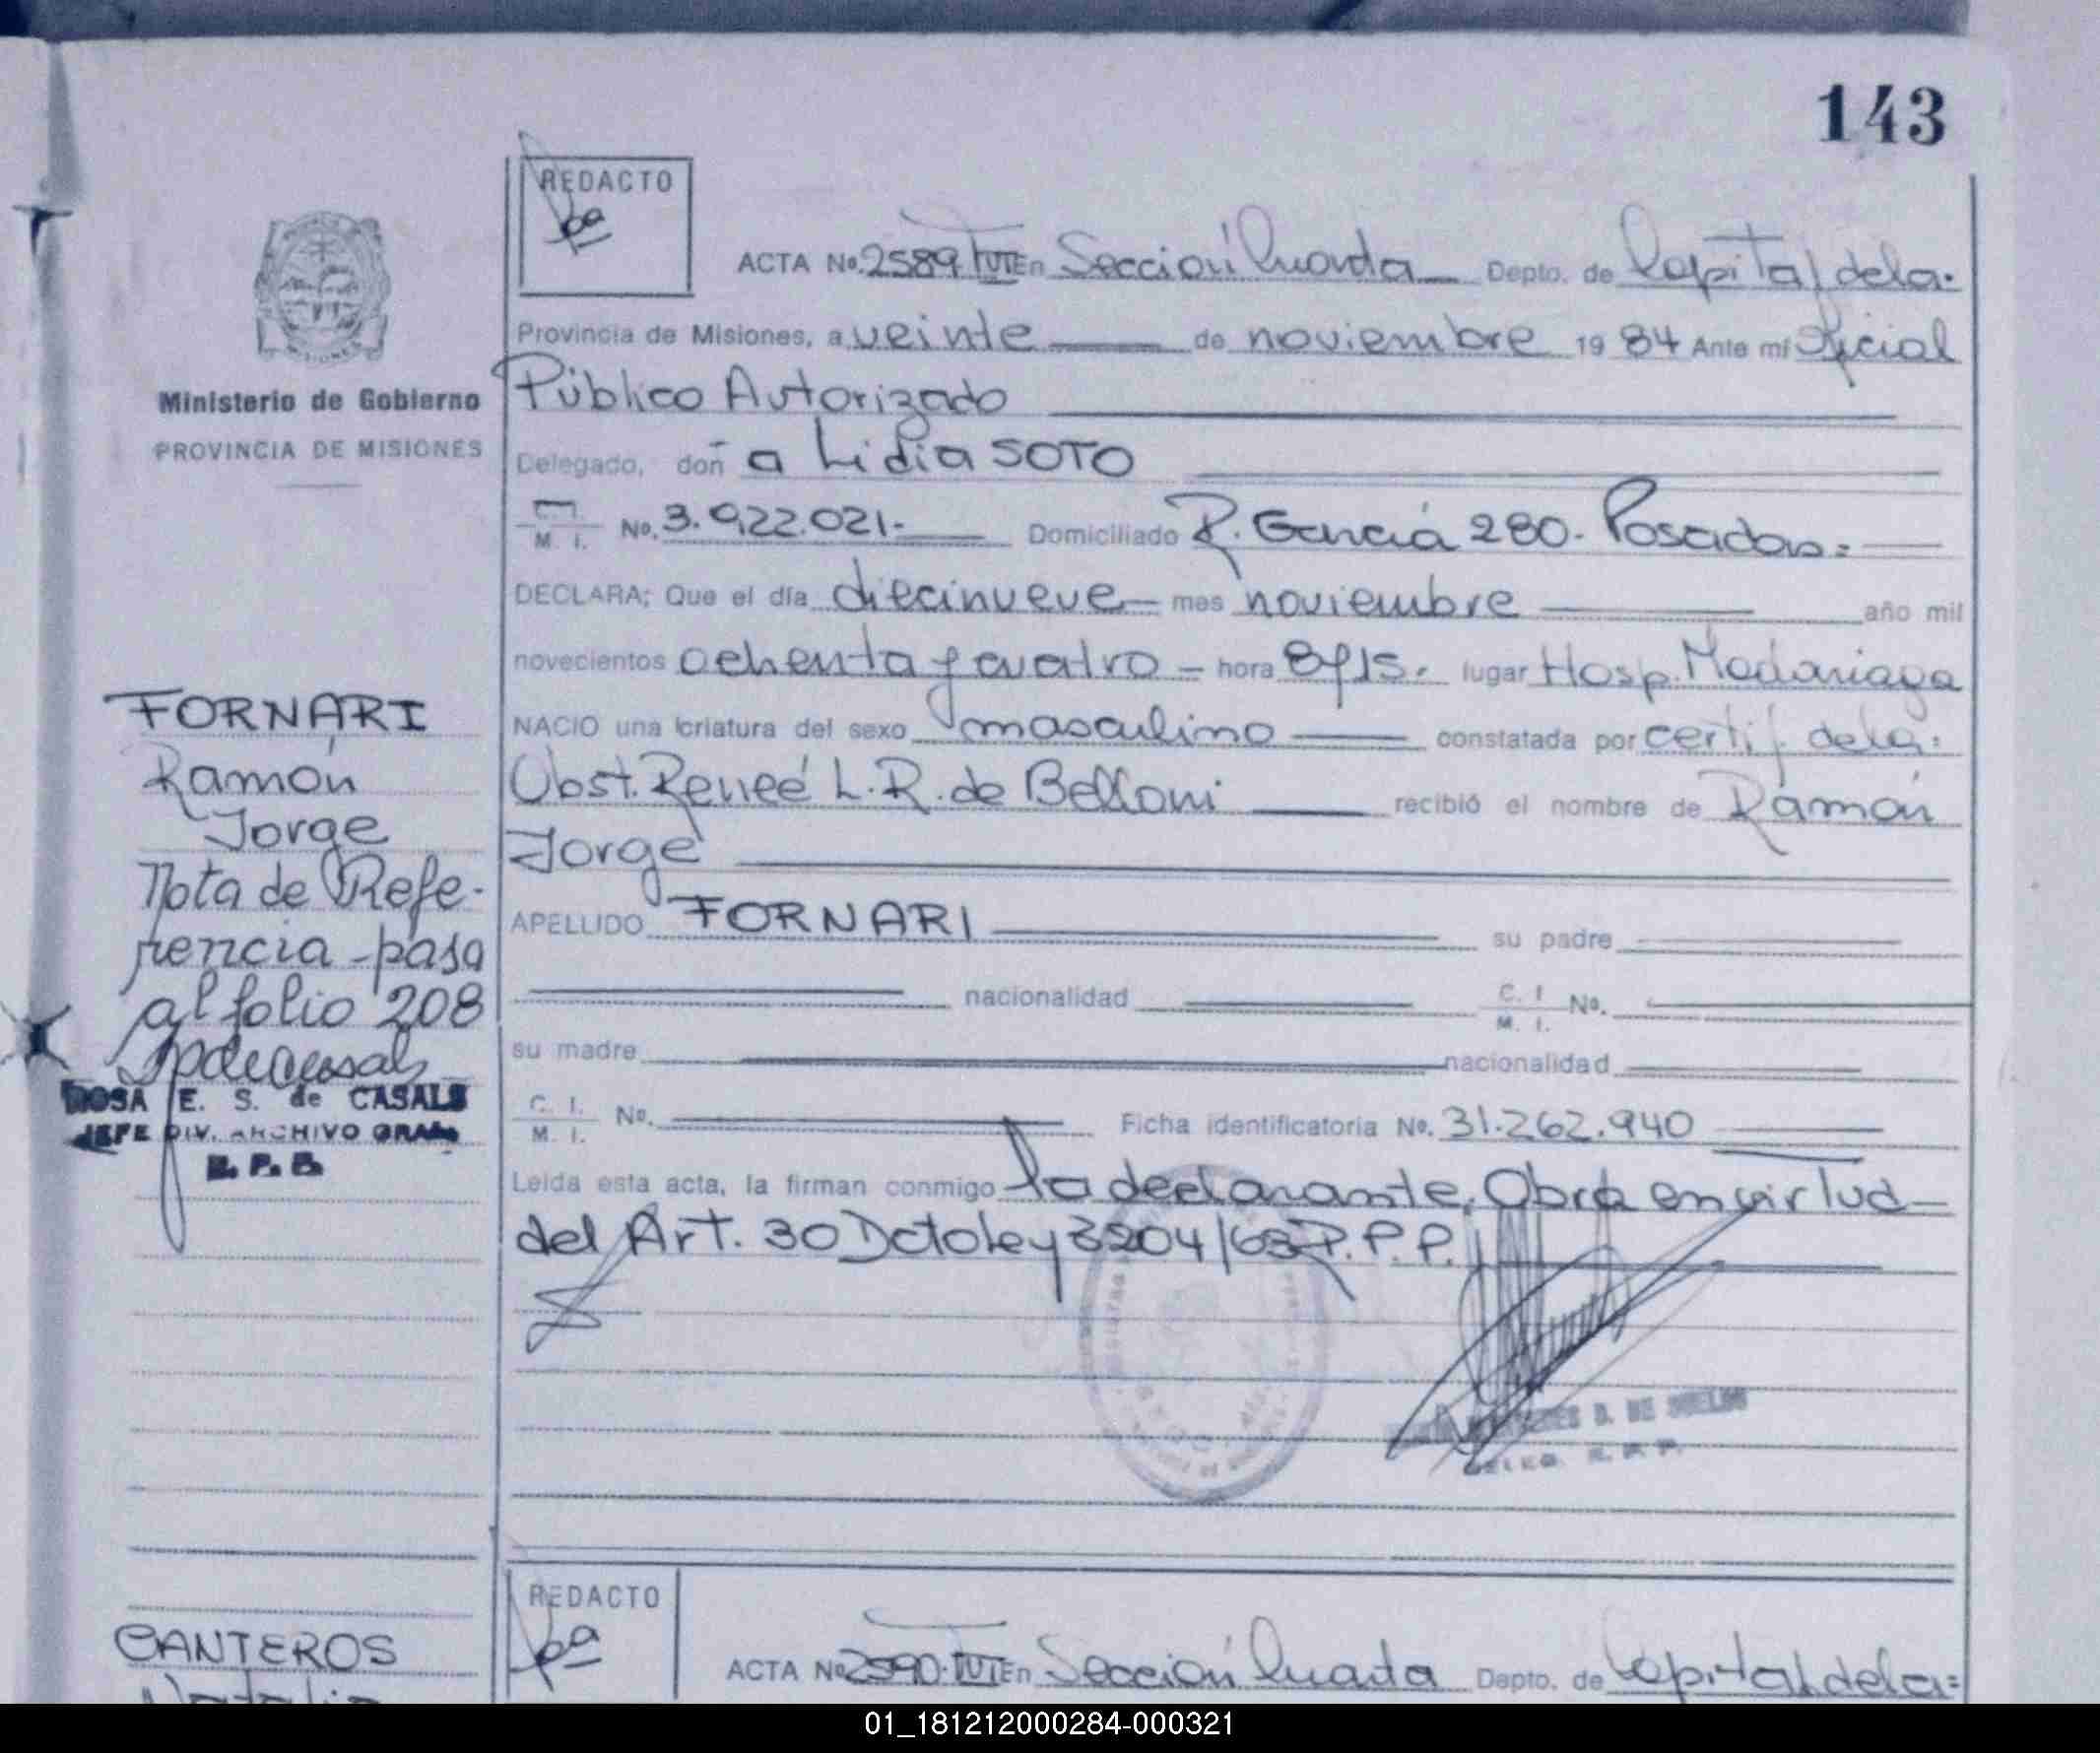 143
REDACTO
ACTA No. 2589 TVI En Sección Cuarta Depto. de Capital de la
Provincia de Misiones, a veinte de noviembre 19 84 Ante mi Oficial
Público Autorizado
Delegado, doñ a Lidia SOTO
C. I. M. I. No. 3.922.021.- Domiciliado R. García 280. Posadas=
DECLARA; Que el día diecinueve mes noviembre año mil
novecientos ochenta y cuatro - hora 8 y 15. lugar Hosp. Madariaga
NACIO una criatura del sexo masculino constatada por certif de la
Obst. Reneé L. R. de Belloni recibió el nombre de Ramón
Jorge
APELLIDO FORNARI su padre
nacionalidad C. I. M. I. No.
su madre nacionalidad
C. I. M. I. No. Ficha identificatoria No. 31.262.940
Leida esta acta, la firman conmigo la declarante. Obra en virtud
del Art. 30 Dcto Ley 8204/63 P. P. P.
DE
Ministerio de Gobierno
PROVINCIA DE MISIONES
FORNARI
Ramón
Jorge
Nota de Refe-
rencia - pasa
al folio 208
ROSA E. S. de CASALS
JEFE DIV. ARCHIVO GRAL
R. P. P.
REDACTO
ACTA No 2590 TVI En Sección Cuarta Depto. de Capital de la=
CANTEROS
Natalia
01_181212000284-000321